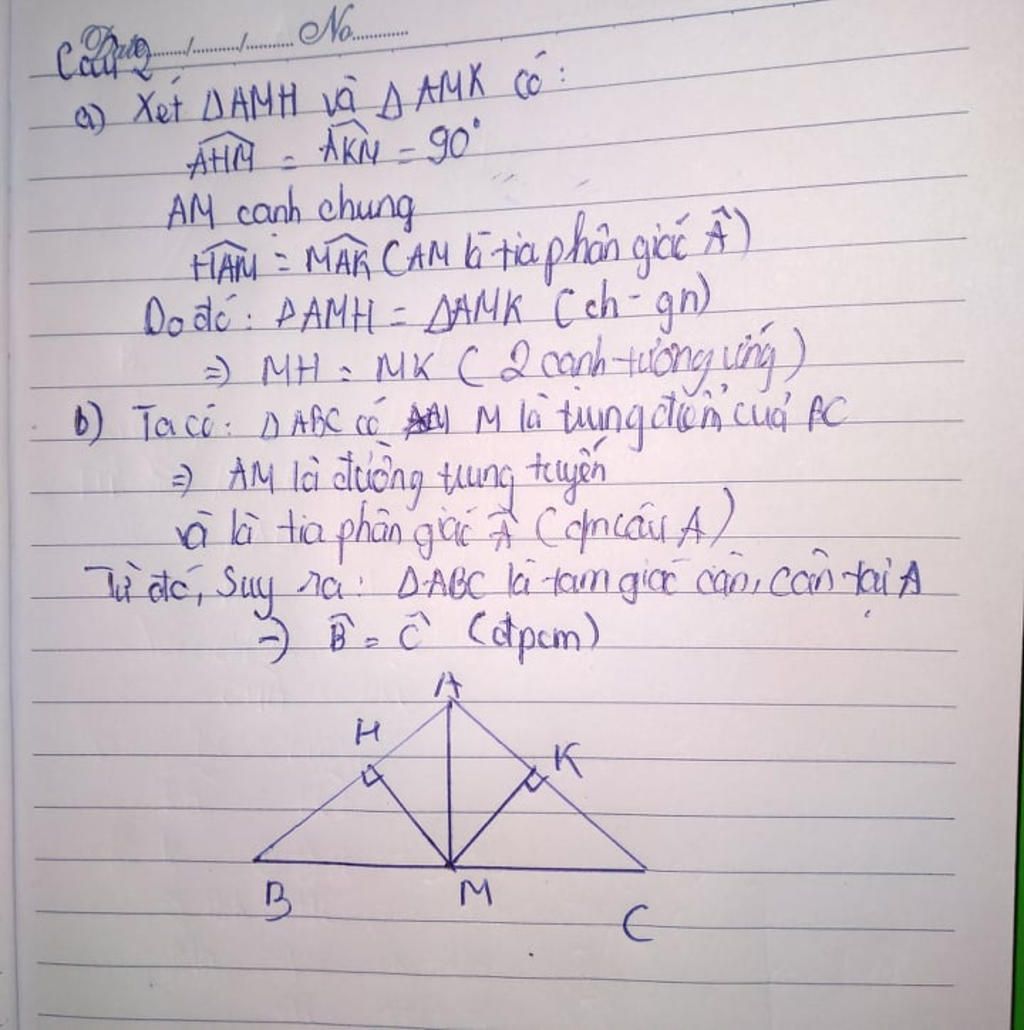 Date ......./......./.......... No.............
Câu 2
a) Xét ΔAMH và ΔAMK có:
AHM = AKM = 90°
AM cạnh chung
HAM = MAK (AM là tia phân giác Â)
Do đó: ΔAMH = ΔAMK (ch - gn)
=> MH = MK (2 cạnh tương ứng)
b) Ta có: ΔABC có M là trung điểm của BC
=> AM là đường trung tuyến
và là tia phân giác Â
Từ đó, Suy ra: ΔABC là tam giác cân, cân tại A
=> B̂ = Ĉ (đpcm)
A
H
K
B
M
C